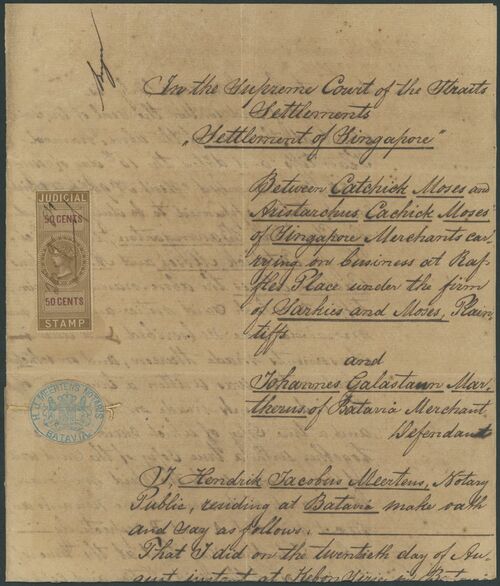 In the Supreme Court of the Straits
Settlements
„Settlement of Singapore"
Between Catchick Moses and
Aristarchus Cachick Moses
of Singapore Merchants car-
rying on business at Raf-
fles Place under the firm
of Sarkies and Moses, Plain
tiffs
and
Johannes Galastaun Mar-
therus, of Batavia Merchant,
Defendant
I, Hendrik Jacobus Meertens, Notary
Public, residing at Batavia make oath
and say as follows:
That I did on the twentieth day of Au-
gust instant at Kebon
JUDICIAL
50 CENTS
50 CENTS
STAMP
H. J. MEERTENS NOTARIS
BATAVIA